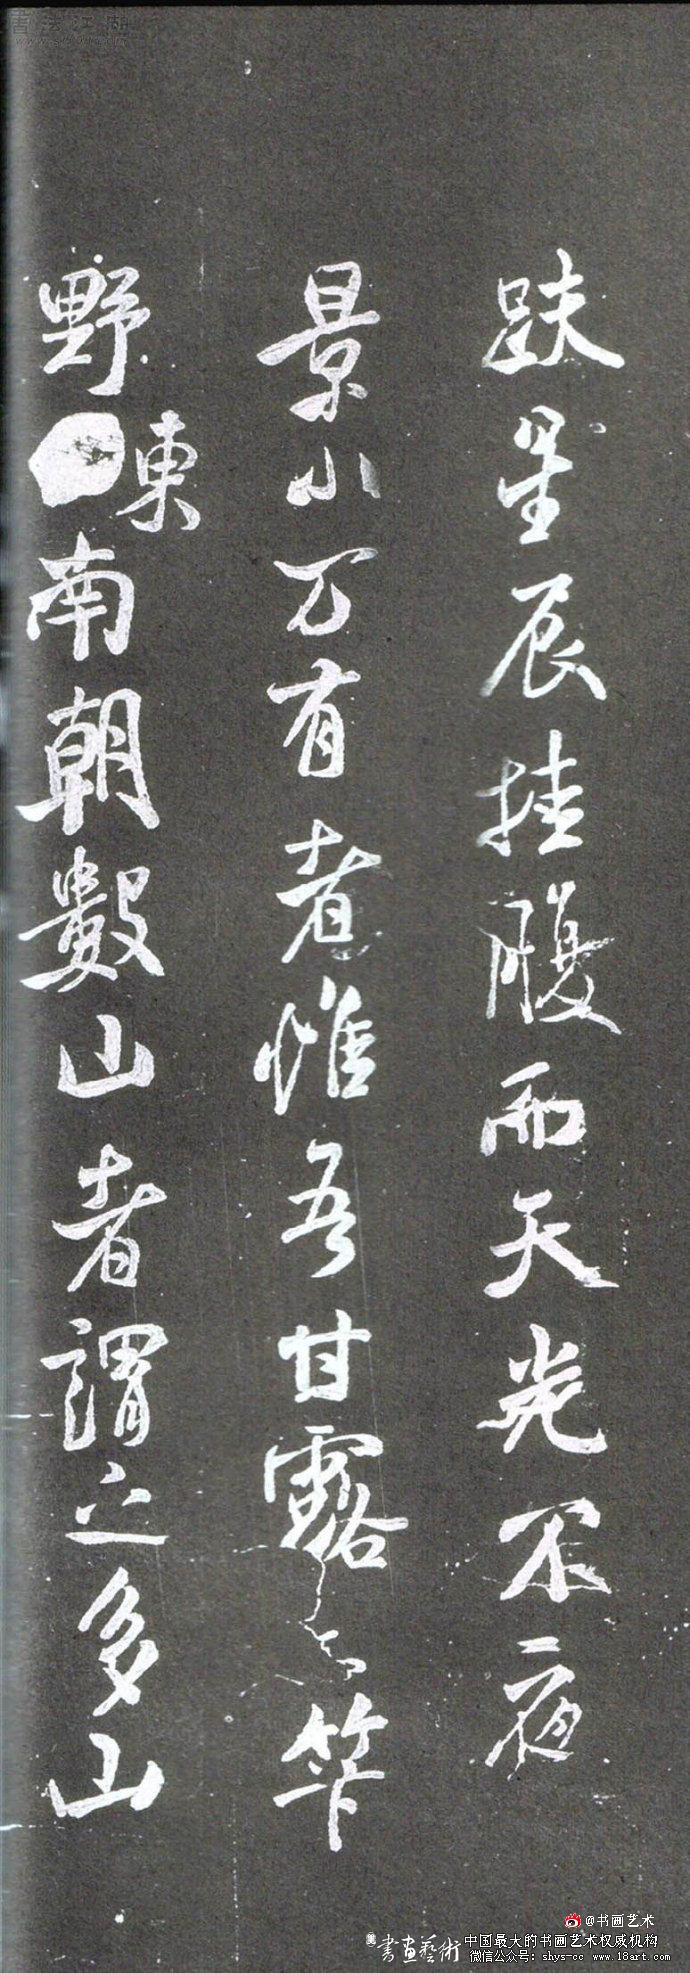 趺星辰挂腹而天光不夜
景小万有者惟吾甘露笮
野東南朝數山者謂之多山
書法江湖
@书画艺术
書画藝術
中国最大的书画艺术权威机构
微信公众号：shys-cc www.18art.com